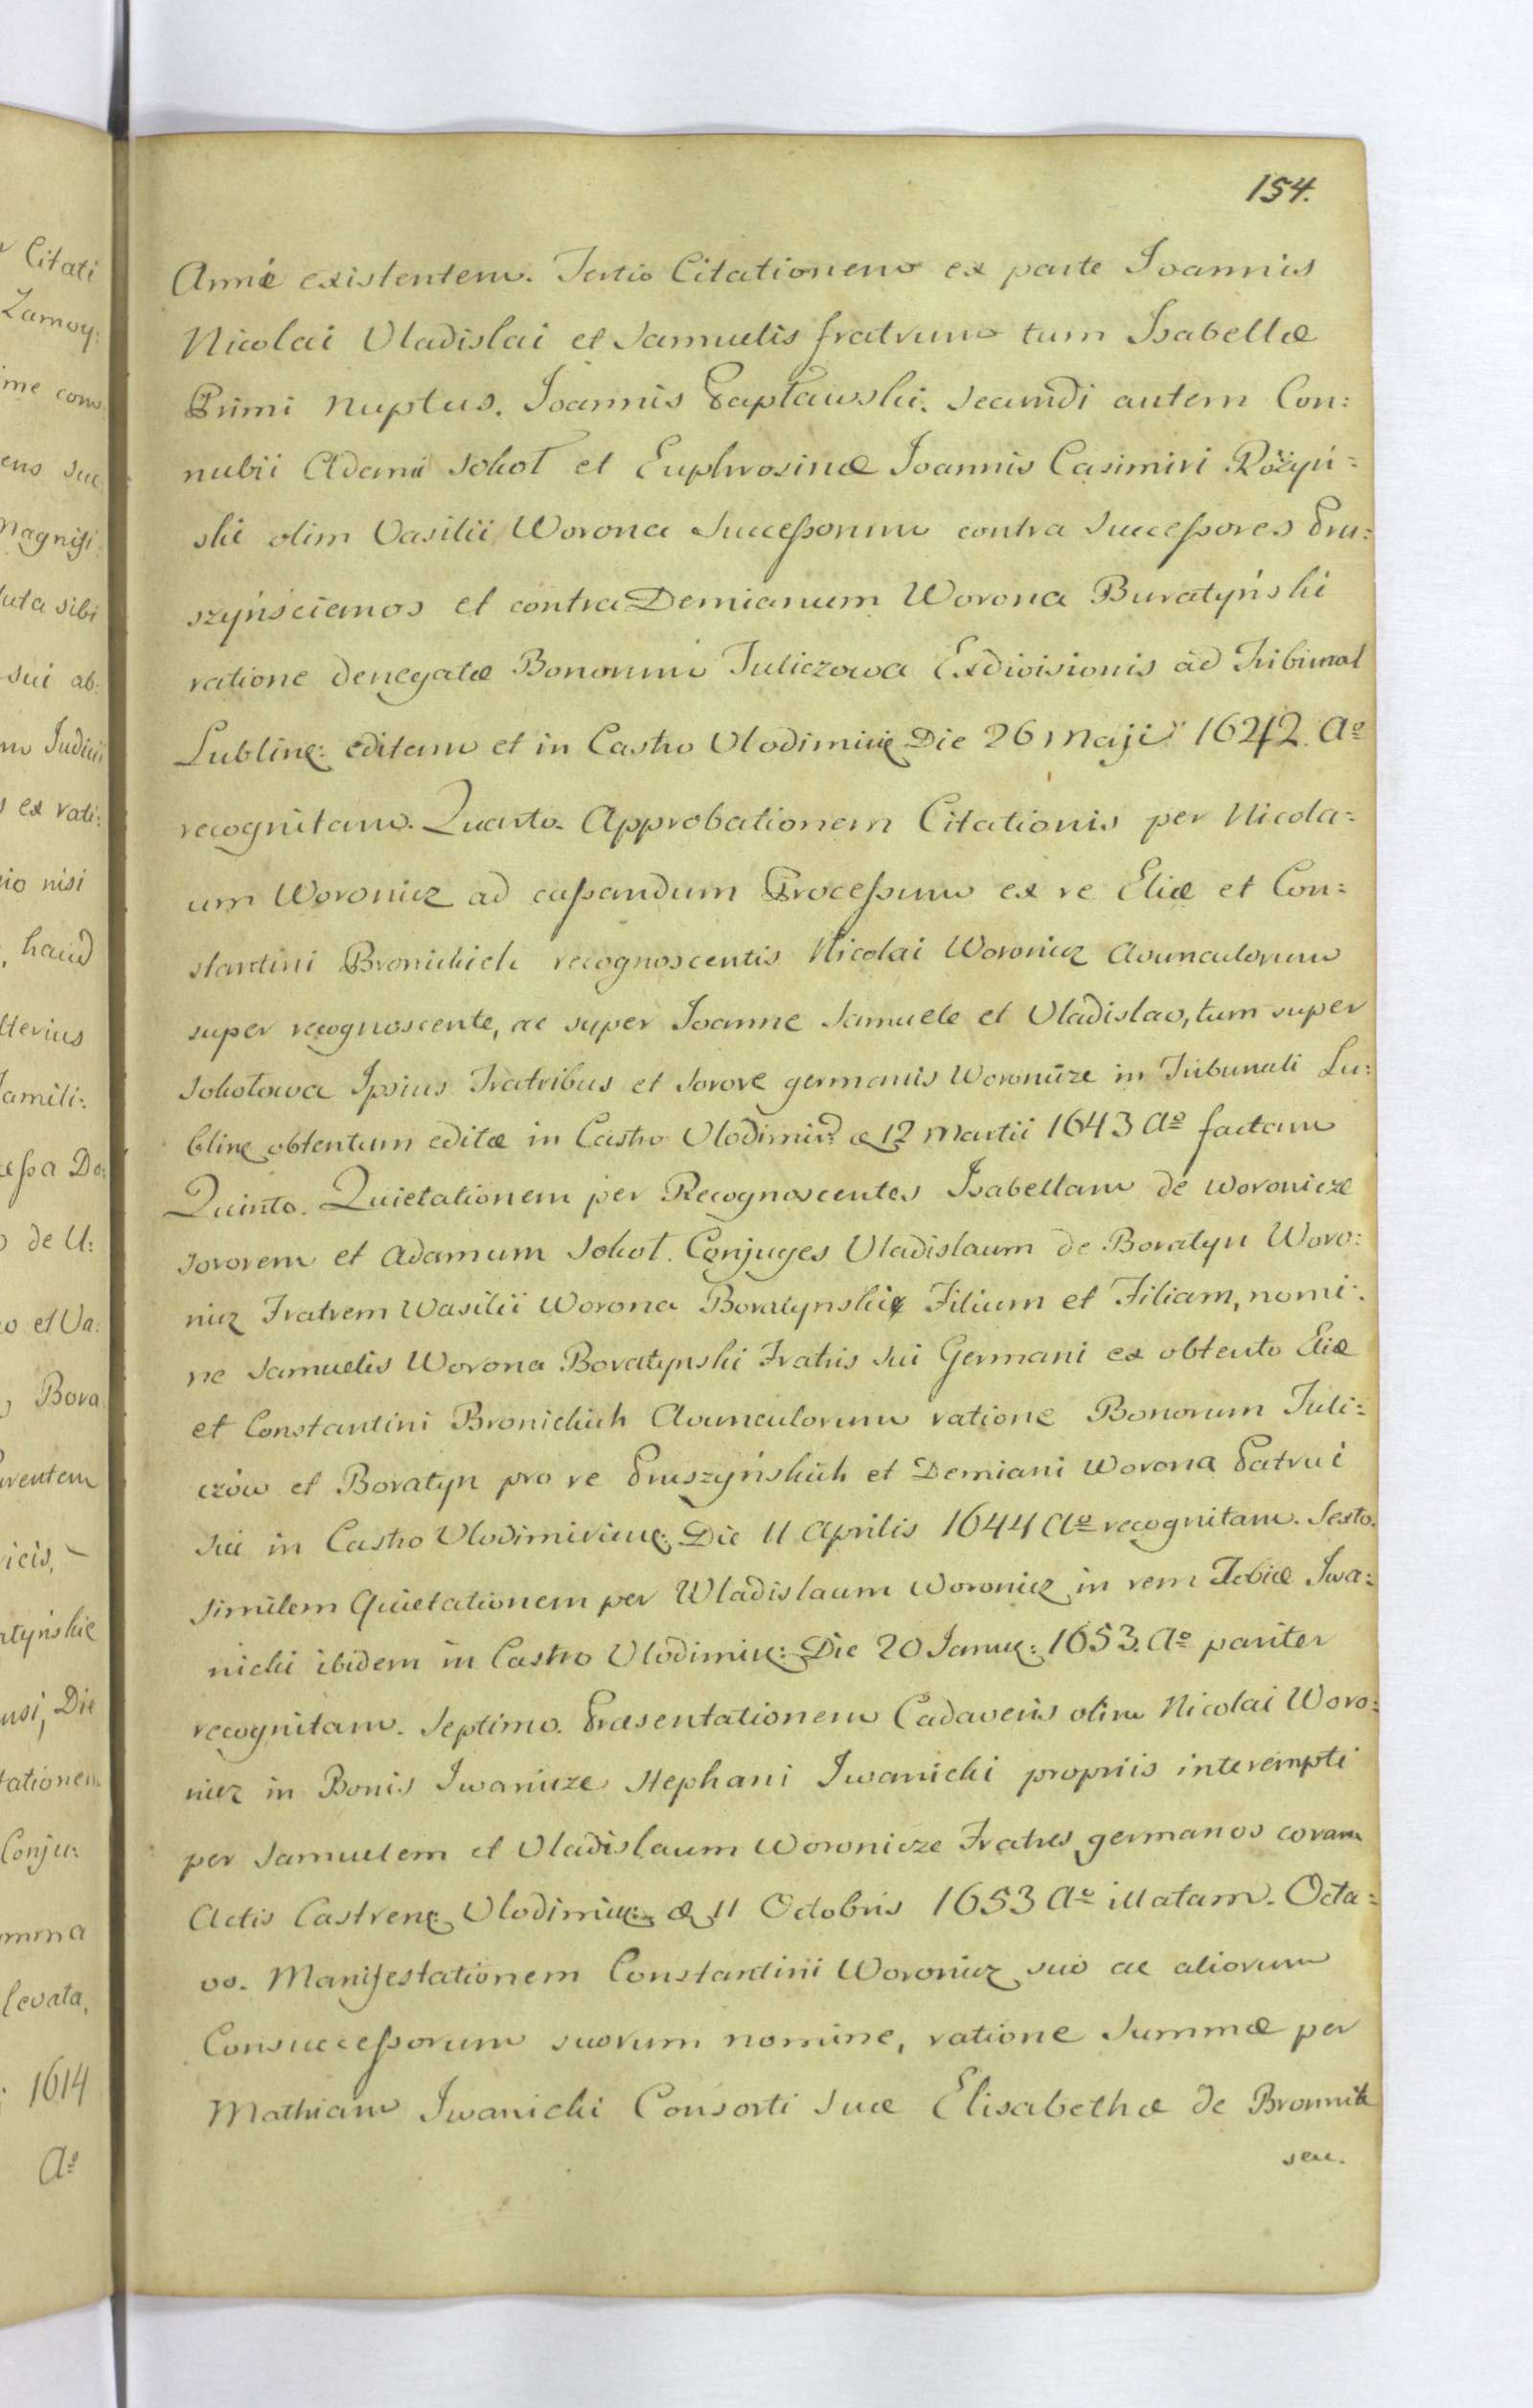 154.
Citati
Zamoy:
ime com
ens suc
magnifi:
luta sibi
sui ab:
m Judicii
s ex rati:
cio nisi
, haud
lterius
Famili:
cessa Do:
o de U:
o et Va:
, Bora
arentem
icis,
atyńskie
nsi, Die
tationem
Conju:
mma
levata,
: 1614
Aº
Annæ existentem. Tertio Citationem ex parte Joannis
Nicolai Vladislai et Samuelis fratrum tum Isabellæ
Primi nuptus. Joannis Papławski. Secundi autem Con:
nubii Adami Sokoł et Euphrosinæ Joannis Casimiri Różyń:
ski olim Vasilii Worona Successorum contra Successores Pru:
szyńscianos et contra Demianum Worona Buratyński
ratione denegatæ Bonorum Tuliczowa Exdivisionis ad Tribunal
Lubline: editam et in Castro Vlodimirie Die 26 Maji 1642. Aº
recognitam. Quarto. Approbationem Citationis per Nicola:
um Woronicz ad cassandum Processum ex re Eliæ et Con:
stantini Bronickich recognoscentis Nicolai Woronicz Avunculorum
super recognoscente, ac super Joanne Samuele et Vladislao, tum super
Sokołowa Ipsius Fratribus et Sorore germanis Woronicze in Tribunali Lu:
bline obtentum editæ in Castro Vlodimir: æ 12 Martii 1643 Aº factam
Quinto. Quietationem per Recognoscentes Isabellam de Woronicze
Sororem et Adamum Sokoł. Conjuges Vladislaum de Boratyn Woro:
nicz Fratrem Wasilii Worona Boratynskie Filium et Filiam, nomi:
ne Samuelis Worona Boratynski Fratris sui Germani ex obtento Eliæ
et Constantini Bronickich Avunculorum ratione Bonorum Tuli:
czów et Boratyn pro re Pruszyńskich et Demiani Worona Patrui
sui in Castro Vlodimirien: Die 11 Aprilis 1644 Aº recognitam. Sexto.
Similem Quietationem per Wladislaum Woronicz in rem Zebiæ Iwa:
nicki ibidem in Castro Vlodimir: Die 20 Janua: 1653. Aº pariter
recognitam. Septimo. Præsentationem Cadaveris olim Nicolai Woro:
nicz in Bonis Iwanicze Stephani Iwanicki propriis interempti
per Samuelem et Vladislaum Woronicze Fratres germanos coram
Actis Castren: Vlodimir: æ 11 Octobris 1653 Aº illatam. Octa:
vo. Manifestationem Constantini Woronicz suo ac aliorum
Consuccessorum suorum nomine, ratione Summæ per
Mathiam Iwanicki Consorti suæ Elisabethæ de
seu.